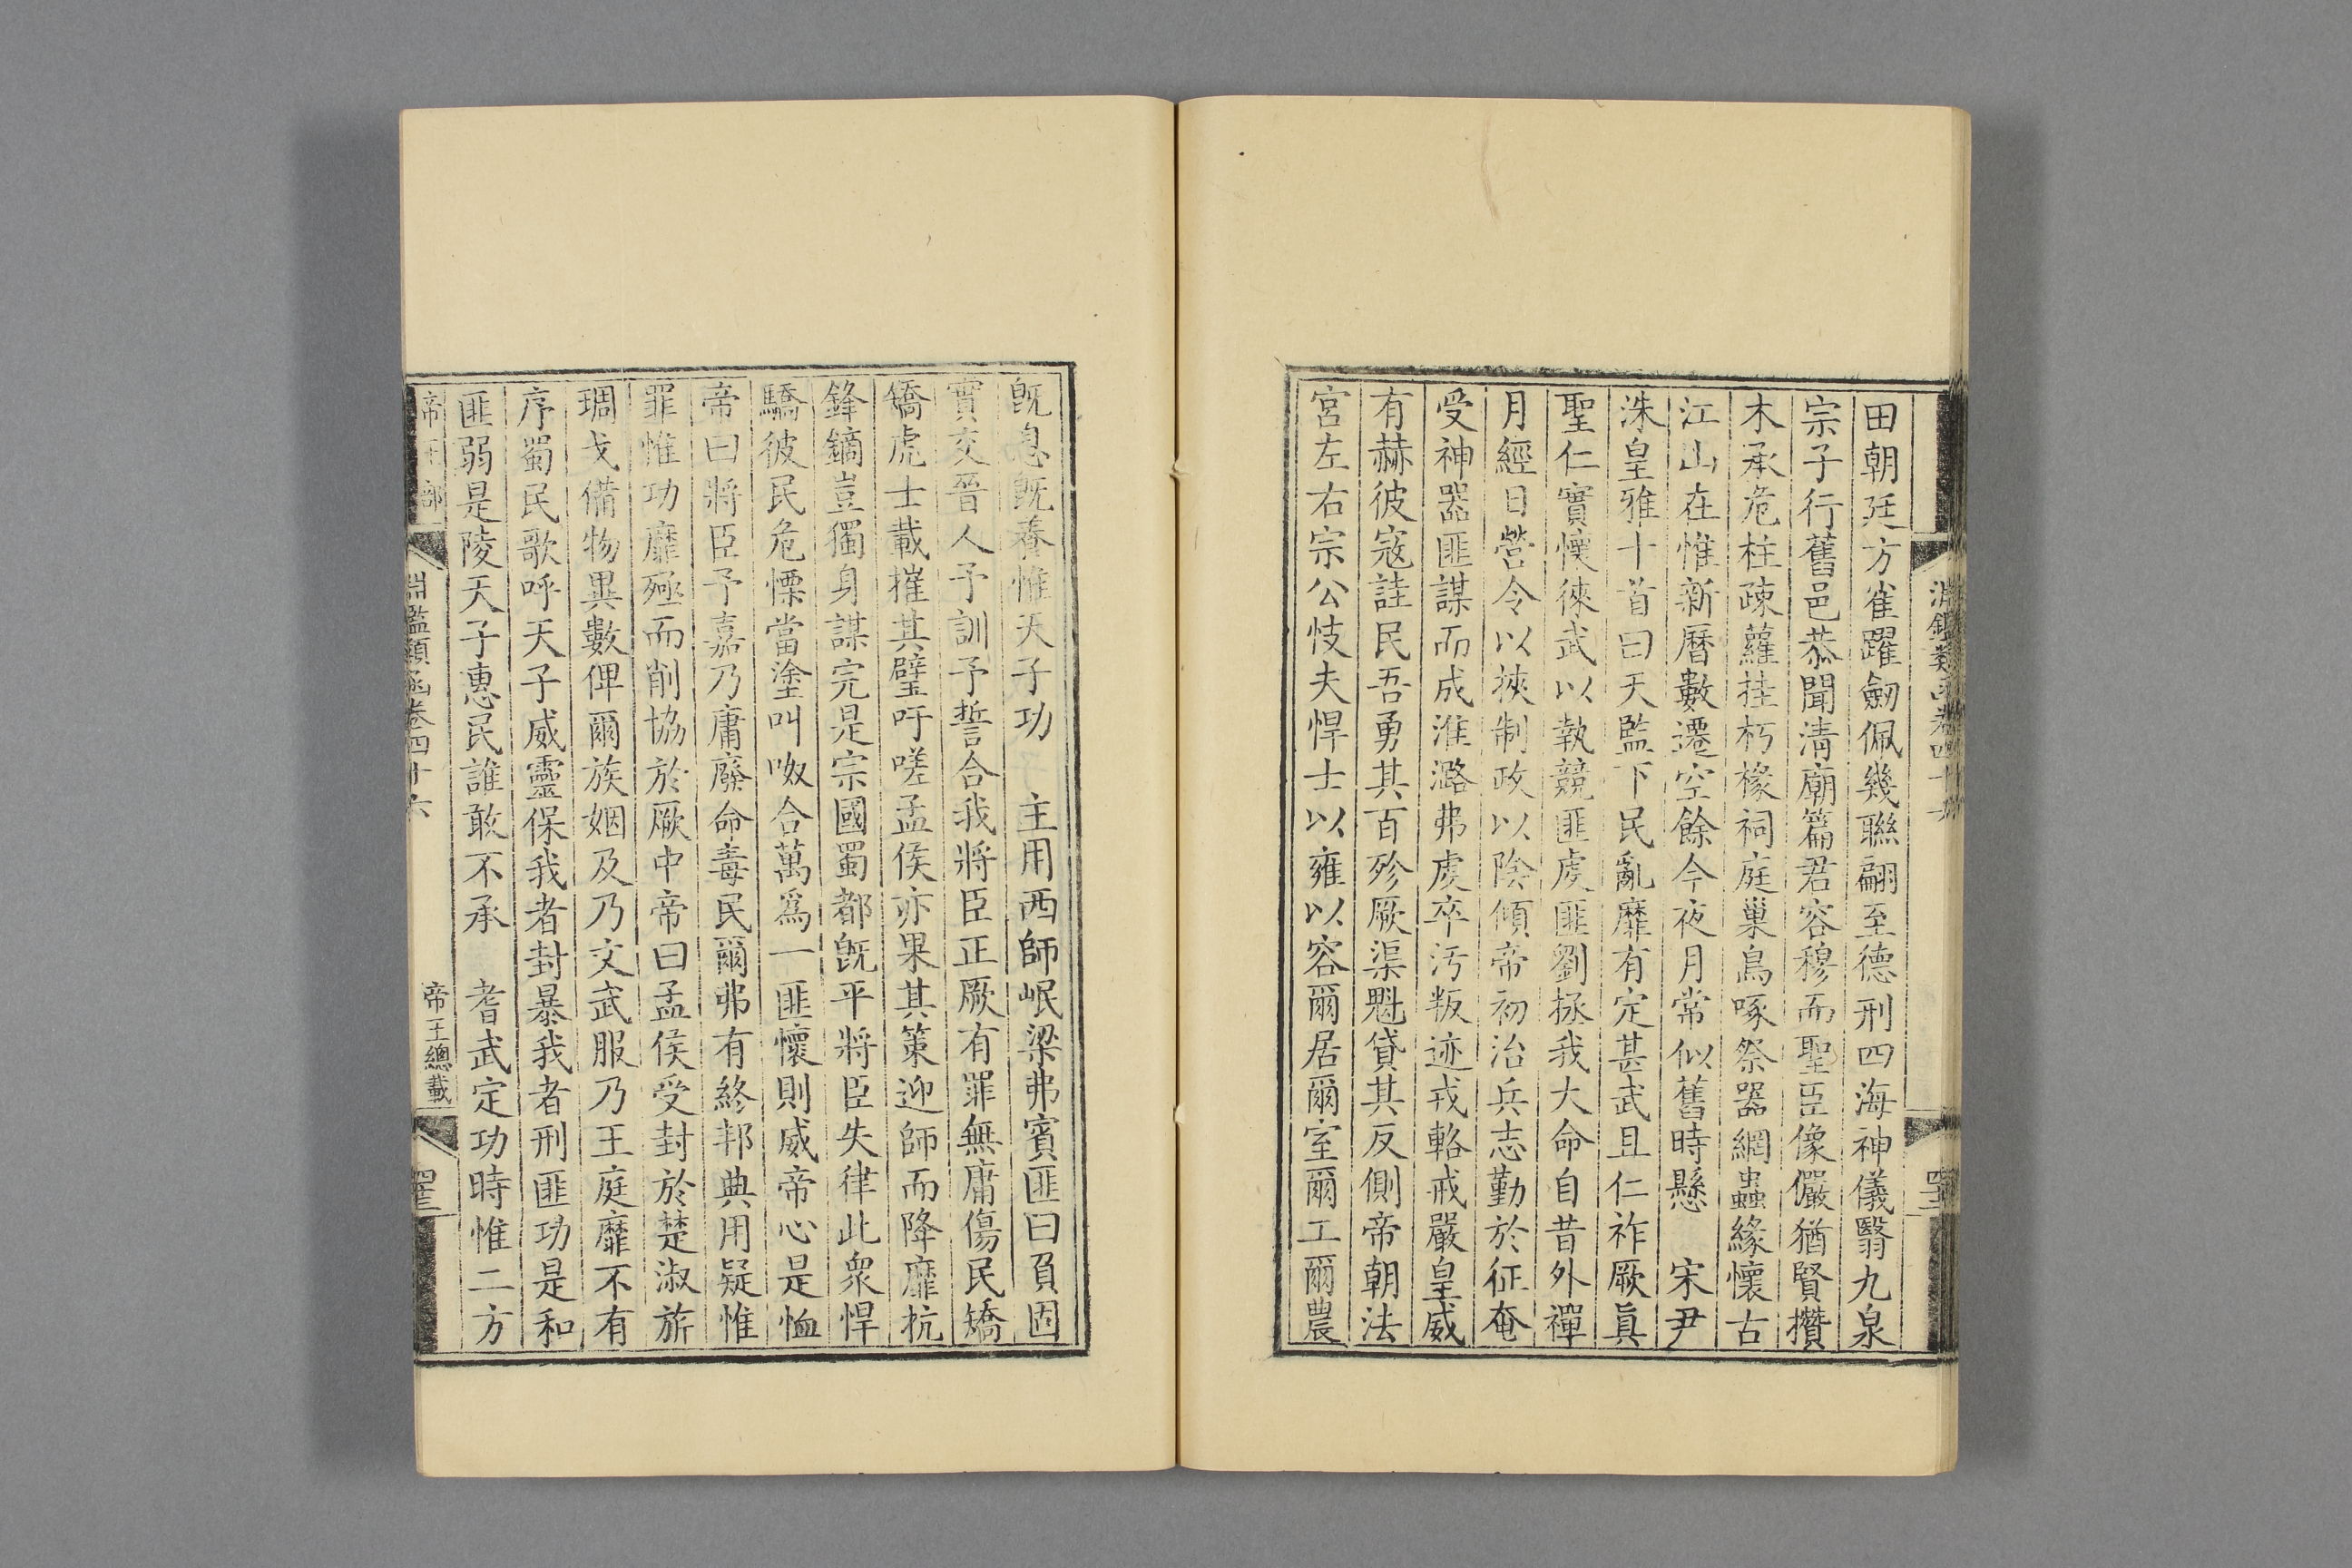 田朝廷方雀躍劒佩幾聯翩至德刑四海神儀翳九泉
宗子行舊邑恭聞清廟篇君容穆而聖臣像儼猶賢攢
木承危柱疎蘿挂朽椽祠庭巢鳥啄祭器網蟲緣懷古
江山在惟新曆數遷空餘今夜月常似舊時懸 宋尹
洙皇雅十首曰天監下民亂靡有定甚武且仁祚厥眞
聖仁實懷徠武以執競匪虔匪劉拯我大命自昔外禪
月經日營令以挾制政以陰傾帝初治兵志勤於征奄
受神器匪謀而成淮潞弗虔卒汚叛迹戎輅戒嚴皇威
有赫彼寇詿民吾勇其百殄厥渠魁貸其反側帝朝法
宮左右宗公忮夫悍士以雍以容爾居爾室爾工爾農
既息既養惟天子功 主用西師岷梁弗賓匪曰負固
實交晉人予訓予誓合我將臣正厥有罪無庸傷民矯
矯虎士載摧其壁吁嗟孟侯亦果其策迎師而降靡抗
鋒鏑豈獨身謀完是宗國蜀都既平將臣失律此衆悍
驕彼民危慄當塗叫呶合萬爲一匪懷則威帝心是恤
帝曰將臣予嘉乃庸廢命毒民爾弗有終邦典用疑惟
罪惟功靡殛而削協於厥中帝曰孟侯受封於楚淑旂
琱戈備物異數俾爾族姻及乃文武服乃王庭靡不有
序蜀民歌呼天子威靈保我者封暴我者刑匪功是和
匪弱是陵天子惠民誰敢不承 耆武定功時惟二方
帝王部 淵鑑類函卷四十六 帝王總載